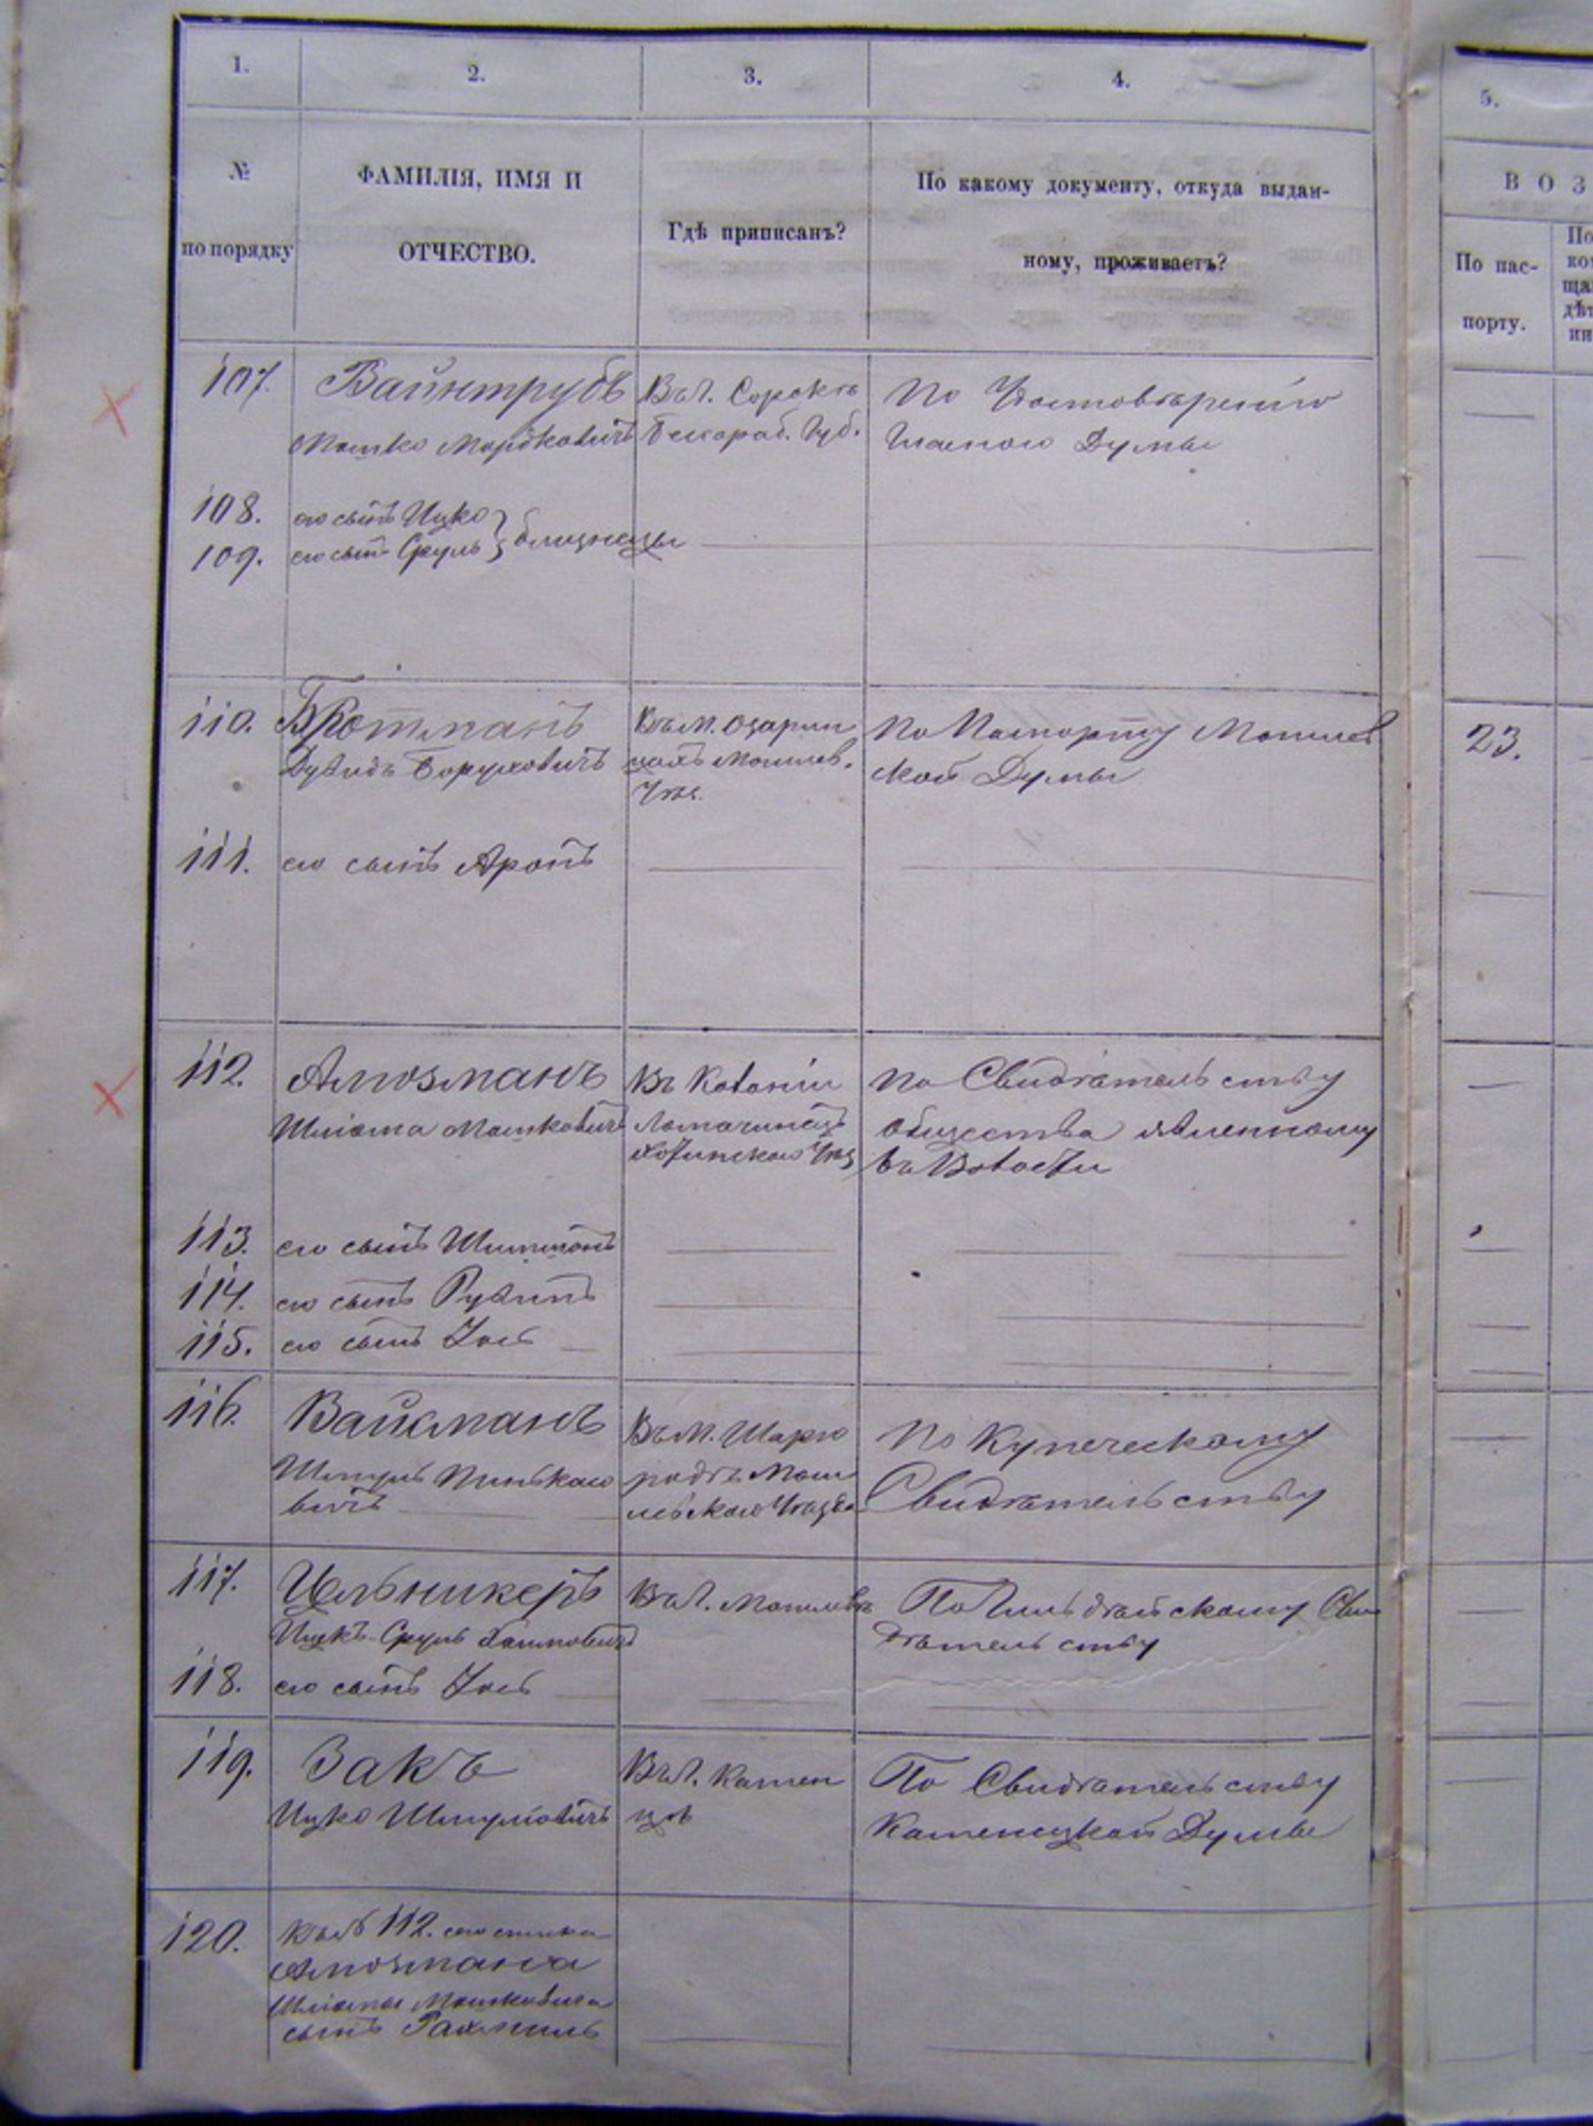 1.
2.
3.
4.
5.
№
по порядку
ФАМИЛІЯ, ИМЯ И
ОТЧЕСТВО.
Гдѣ приписанъ?
По какому документу, откуда выдан-
ному, проживаетъ?
ВОЗ
По пас-
порту.
107.
Вайнтрубъ
Мошко Мордковичъ
Въ г. Сорокѣ
Бесараб. Губ.
По Удостовѣренію
Думы
108.
его сынъ Ицко
109.
его сынъ Сруль
близнецы
110.
Бротманъ
Дувидъ Боруховичъ
Въ м. Озарин
цахъ Могилев.
Уѣз.
По Паспорту Могилев
ской Думы
23.
111.
его сынъ Аронъ
112.
Шліома Мошковичъ
Въ Колоніи
Ломачинецъ
Хотинскаго Уѣз
По Свидѣтельству
общества явленному
въ Волости
113.
его сынъ Шимшонъ
114.
его сынъ Рувинъ
115.
его сынъ Іось
116.
Вайсманъ
Шмуль Пинькасо
вичъ
Въ м. Шарго
родѣ Моги
левскаго Уѣзда
По Купеческому
Свидѣтельству
117.
Цельникеръ
Ицекъ-Сруль Хаимовичъ
Въ г. Могилевѣ
По Гильдѣйскому Сви
дѣтельству
118.
его сынъ Іось
119.
Закъ
Ицко Шмулiовичъ
Въ г. Камен
цѣ
По Свидѣтельству
Каменецкой Думы
120.
Къ № 112. семейника
Шліомы Мошковича
сынъ Рахмиль